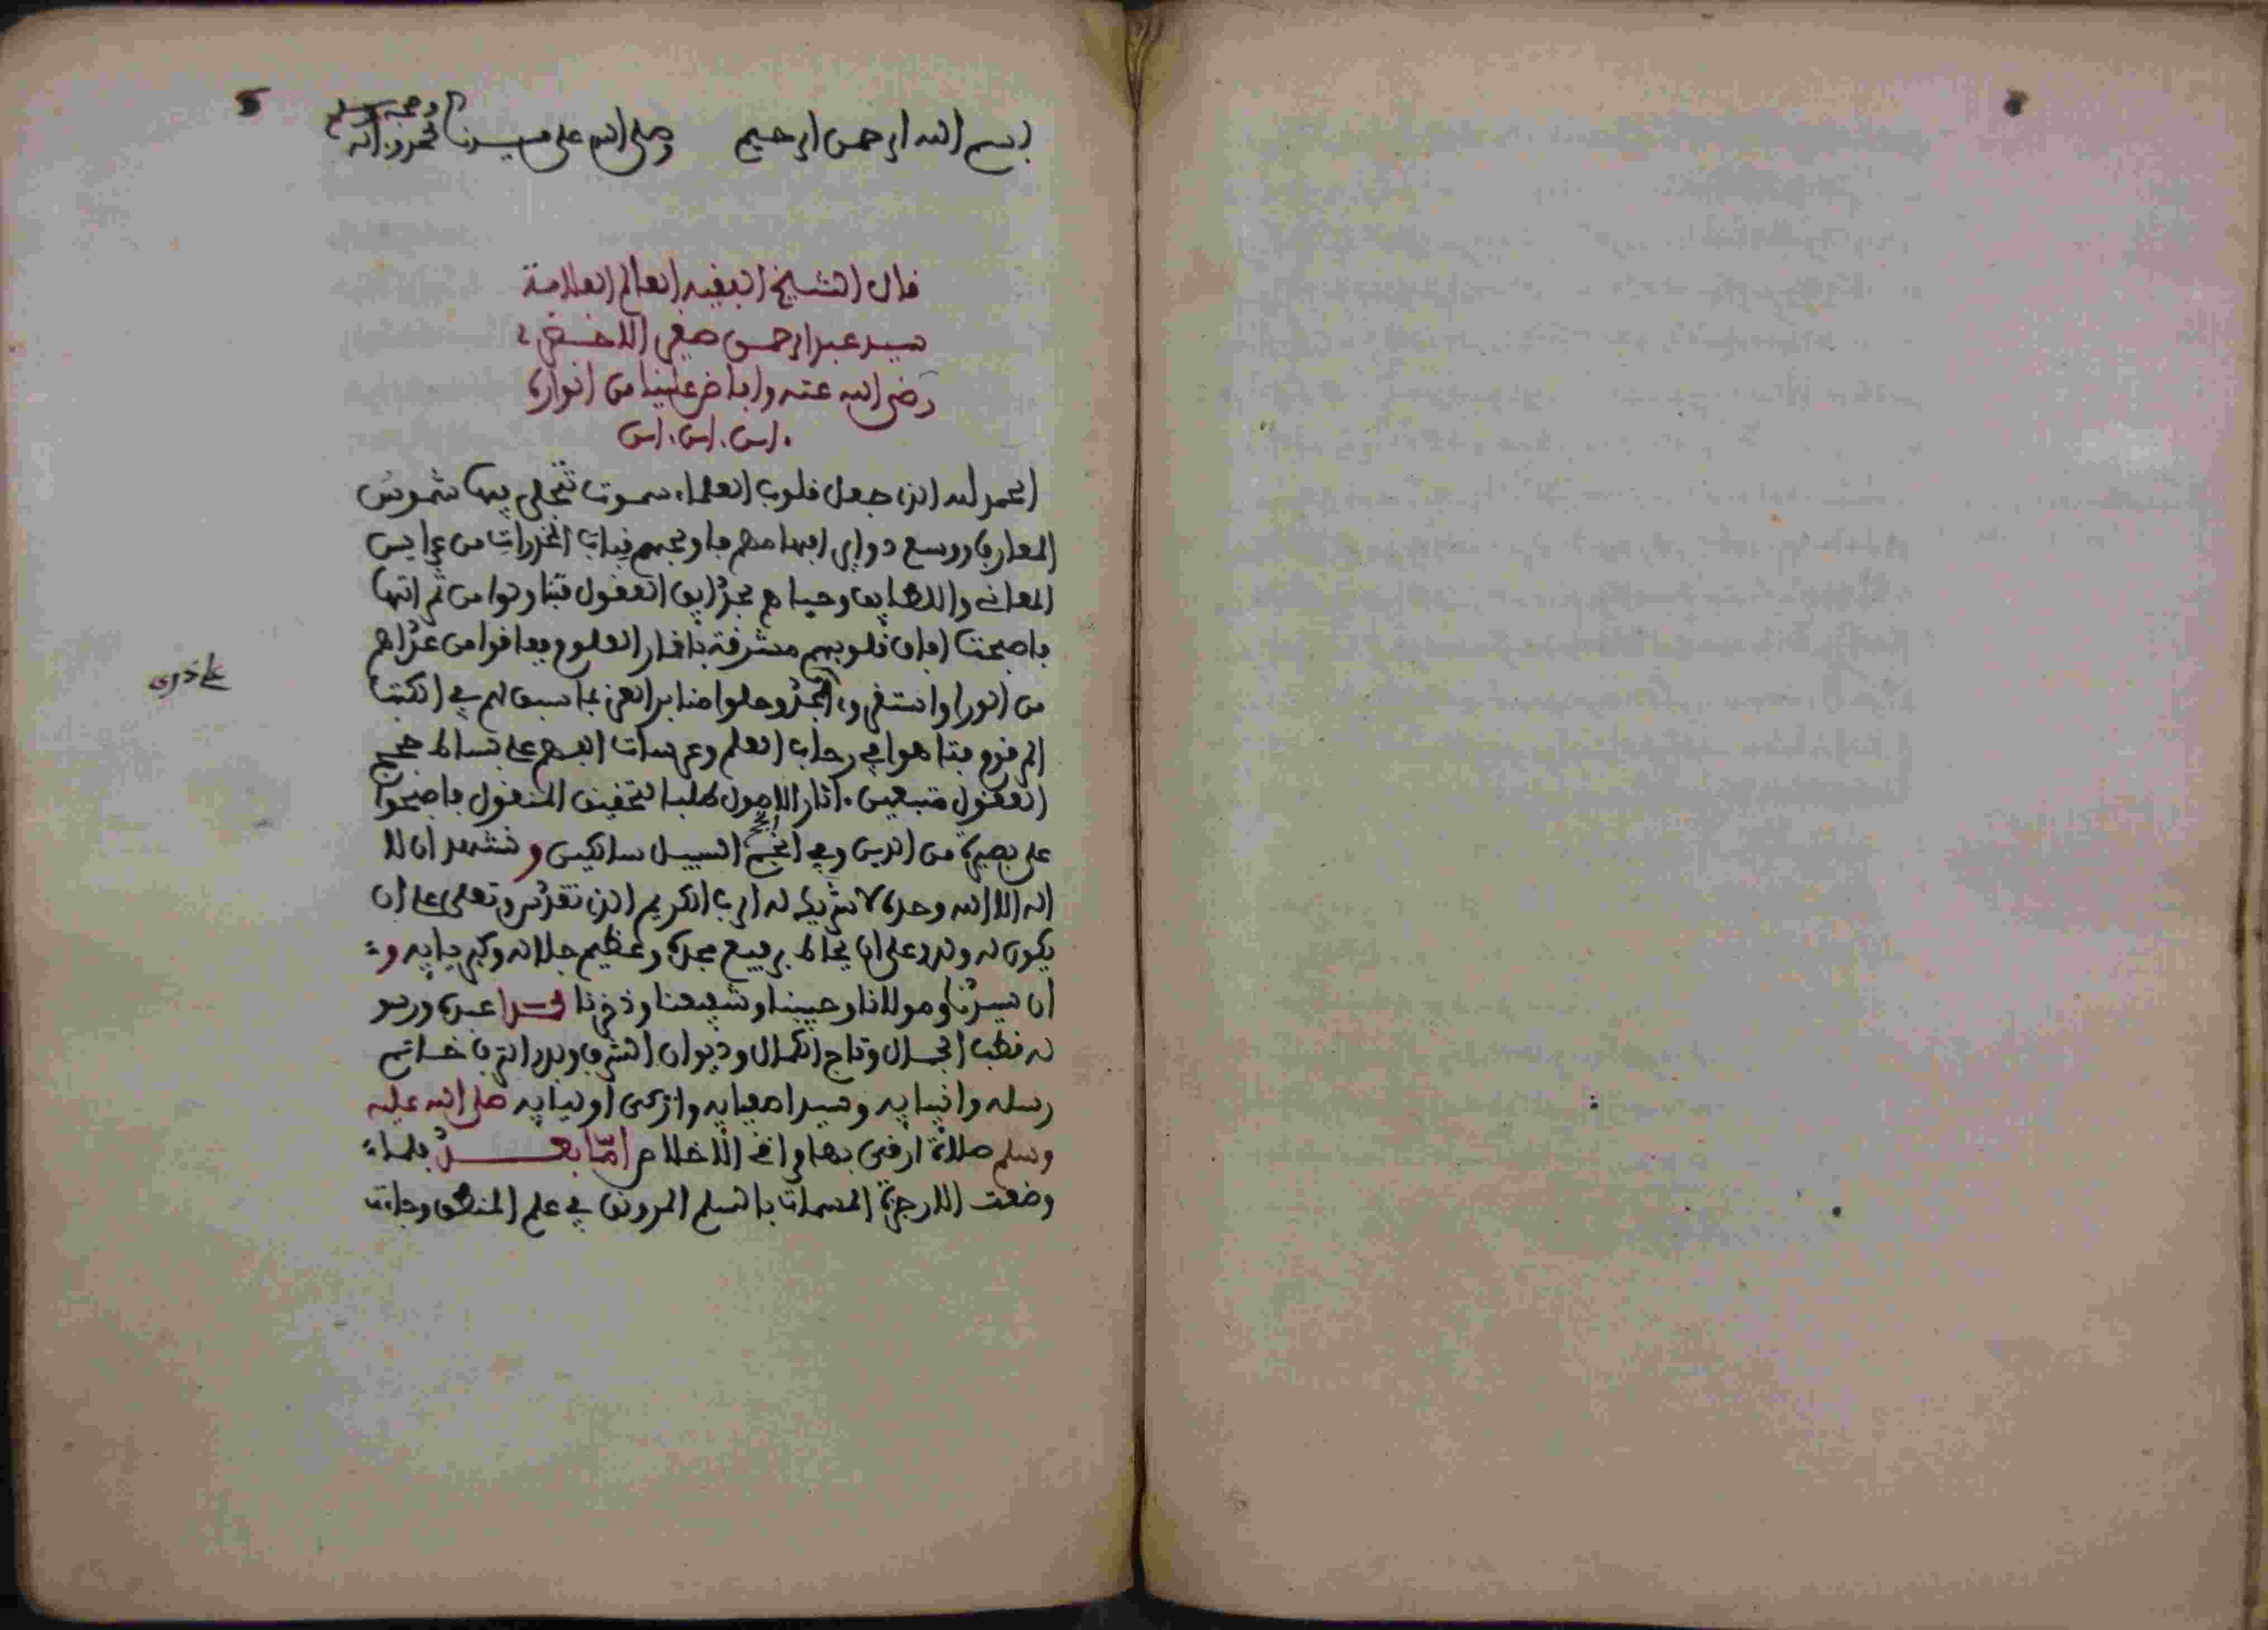 بسم الله الرحمن الرحيم وصلى الله على سيدنا محمد وآله وصحبه وسلم
قال الشيخ الفقيه العالم العلامة
سيد عبد الرحمن صغير الاخضري
رضي الله عنه وافاض علينا من انواره
امين امين امين
الحمد لله الذي جعل قلوب العلماء سموت تتجلى فيها شموس
المعارف ووسع دواير افهامهم فاولجهم قباب المخدرات من عرايس
المعاني واللطايف وحباهم بحدايق العقول فتناولوا من ثمراتها
فاصبحت افاق قلوبهم مشرقة باقمار العلوم ففاقوا من عداهم
من الورا واستقروا المجد وحلوا منابر العز بما سبق لهم في الكتب
المرقوم فتاهوا في رحاب العلم وعرصات الفهم على بساط صحيح
العقول متبعين اثار الاصول طلبا لتحقيق المنقول فاصبحوا
على بصيرة من الدين وفي انجح السبيل سالكين ونشهد ان لا
اله الا الله وحده لا شريك له الرب الكريم الذي تقدس وتعلى على ان
يكون له ولد وعلى ان يحاط برفيع مجده وعظيم جلاله وكبريايه و
ان سيدنا ومولانا وحبيبنا وشفيعنا وذخرنا محمدا عبده ورسو
له قطب الجمال وتاج الكمال وديوان الشرف وبدر الترف خاتم
رسله وانبيايه وسيد اصفيايه وازكى اوليايه صلى الله عليه
وسلم صلاة ارقى بها مراقي الاخلاص اما بعد فلما
وضعت الارجزة المسمات بالسلم المرونق في علم المنطق وجاءت